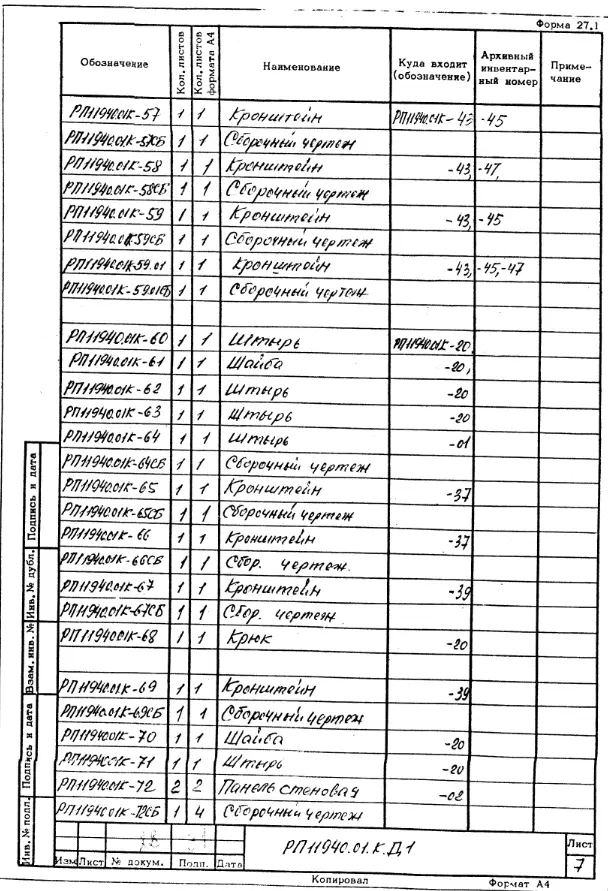 Форма 27.1
Обозначение Кол. листов Кол. листов формата А4 Наименование Куда входит (обозначение) Архивный инвентарный номер Примечание
РП11940.01К-57 1 1 Кронштейн РП11940.01К-43 -45
РП11940.01К-57СБ 1 1 Сборочный чертеж
РП11940.01К-58 1 1 Кронштейн -43, -47,
РП11940.01К-58СБ 1 1 Сборочный чертеж
РП11940.01К-59 1 1 Кронштейн -43, -45
РП11940.01К-59СБ 1 1 Сборочный чертеж
РП11940.01К-59.01 1 1 Кронштейн -43, -45, -47
РП11940.01К-59.01СБ 1 1 Сборочный чертеж
РП11940.01К-60 1 1 Штырь РП11940.01К-20
РП11940.01К-61 1 1 Шайба -20,
РП11940.01К-62 1 1 Штырь -20
РП11940.01К-63 1 1 Штырь -20
РП11940.01К-64 1 1 Штырь -01
РП11940.01К-64СБ 1 1 Сборочный чертеж
РП11940.01К-65 1 1 Кронштейн -37
РП11940.01К-65СБ 1 1 Сборочный чертеж
РП11940.01К-66 1 1 Кронштейн -37
РП11940.01К-66СБ 1 1 Сбор. чертеж.
РП11940.01К-67 1 1 Кронштейн -39
РП11940.01К-67СБ 1 1 Сбор. чертеж
РП11940.01К-68 1 1 Крюк -20
РП11940.01К-69 1 1 Кронштейн -39
РП11940.01К-69СБ 1 1 Сборочный чертеж
РП11940.01К-70 1 1 Шайба -20
РП11940.01К-71 1 1 Штырь -20
РП11940.01К-72 2 2 Панель стеновая -02
РП11940.01К-72СБ 1 4 Сборочный чертеж
Подпись и дата
Инв. № дубл.
Взам. инв. №
Подпись и дата
Инв. № подл.
Изм Лист № докум. Подп. Дата
РП11940.01.К.Д1
Лист
7
Копировал Формат А4